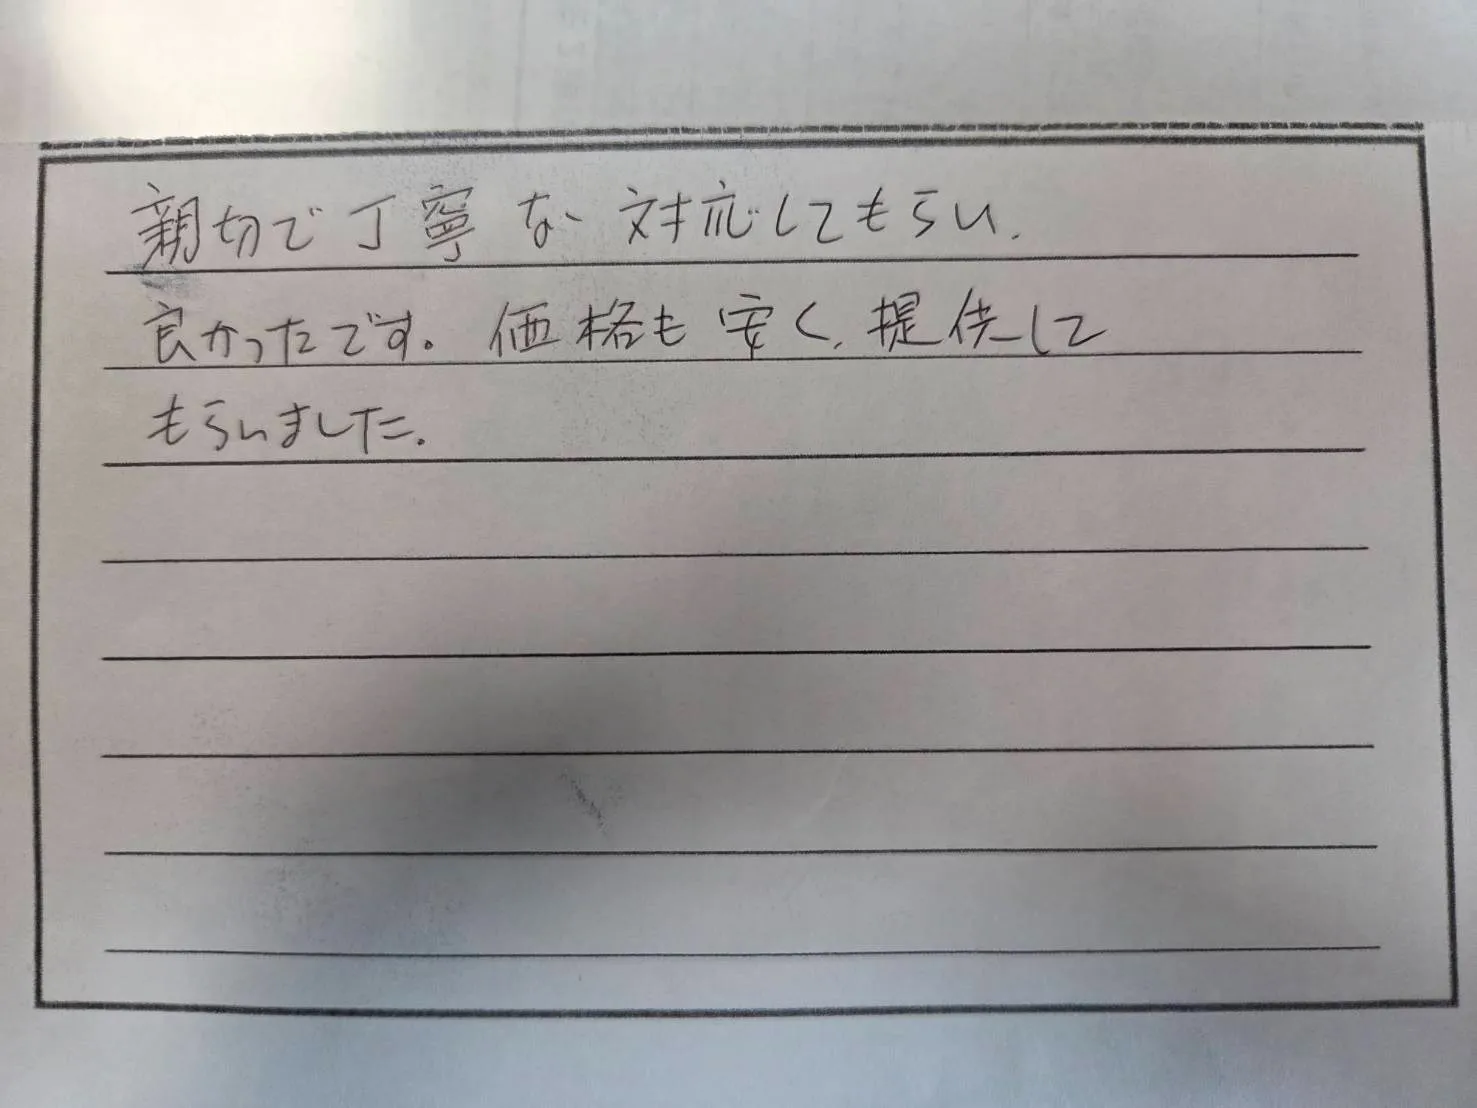 親切で丁寧な対応してもらい、
良かったです。価格も安く、提供して
もらいました。